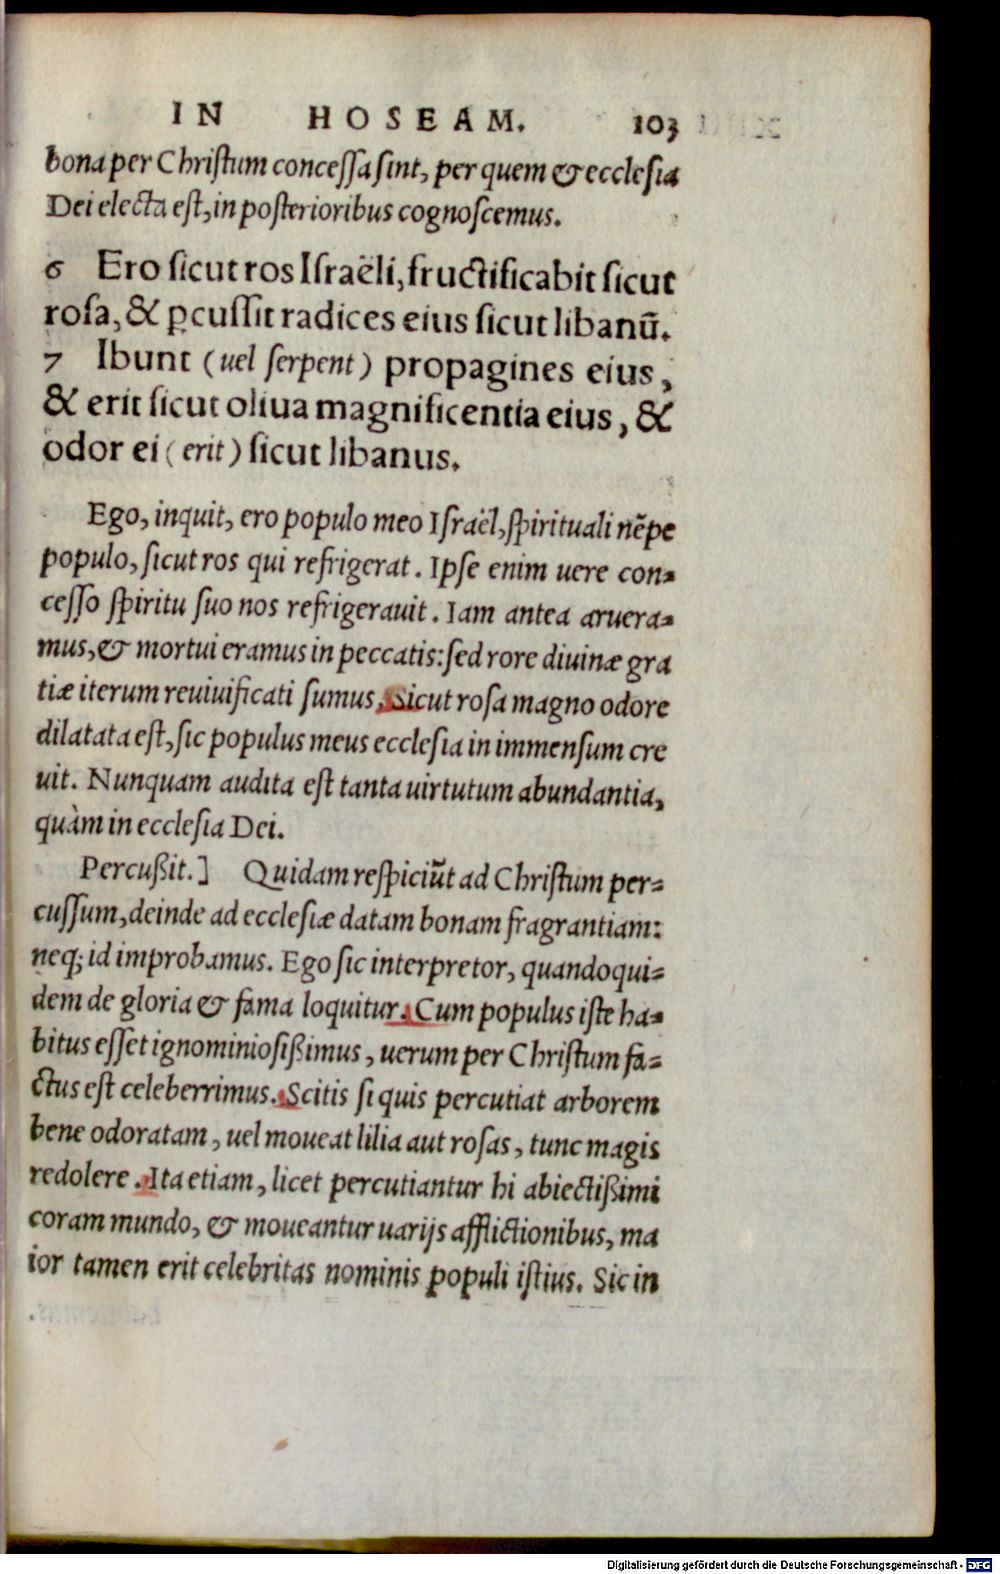 IN HOSEAM. 103
bona per Chriſtum conceſſa ſint, per quem & eccleſia
Dei electa eſt, in poſterioribus cognoſcemus.
6 Ero ſicut ros Iſraëli, fructificabit ſicut
roſa, & ꝑcuſſit radices eius ſicut libanū.
7 Ibunt (uel ſerpent) propagines eius,
& erit ſicut oliua magnificentia eius, &
odor ei (erit) ſicut libanus.
Ego, inquit, ero populo meo Iſraël, ſpirituali nēpe
populo, ſicut ros qui refrigerat. Ipſe enim uere con-
ceſſo ſpiritu ſuo nos refrigerauit. Iam antea aruera-
mus, & mortui eramus in peccatis: ſed rore diuinæ gra
tiæ iterum reuiuificati ſumus. Sicut roſa magno odore
dilatata eſt, ſic populus meus eccleſia in immenſum cre
uit. Nunquam audita eſt tanta uirtutum abundantia,
quàm in eccleſia Dei.
Percußit.] Quidam reſpiciūt ad Chriſtum per-
cuſſum, deinde ad eccleſiæ datam bonam fragrantiam:
neq; id improbamus. Ego ſic interpretor, quandoqui-
dem de gloria & fama loquitur. Cum populus iſte ha-
bitus eſſet ignominioſißimus, uerum per Chriſtum fa-
ctus eſt celeberrimus. Scitis ſi quis percutiat arborem
bene odoratam, uel moueat lilia aut roſas, tunc magis
redolere. Ita etiam, licet percutiantur hi abiectißimi
coram mundo, & moueantur uarijs afflictionibus, ma
ior tamen erit celebritas nominis populi iſtius. Sic in
Digitalisierung gefördert durch die Deutsche Forschungsgemeinschaft - DFG